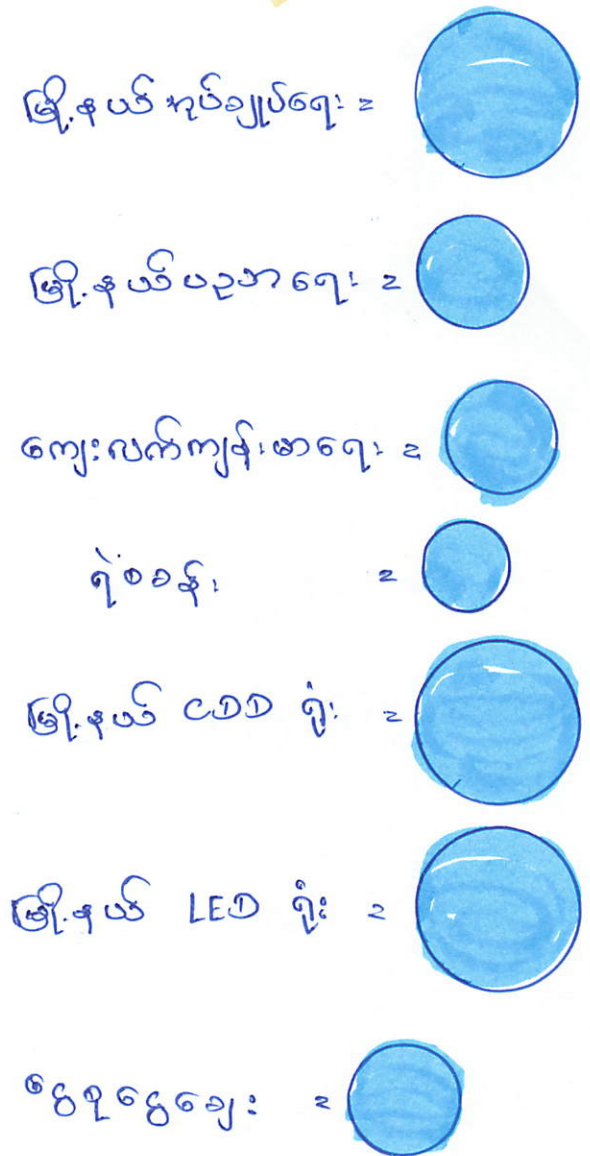 မြို့နယ်အုပ်ချုပ်ရေး =
မြို့နယ်ပညာရေး =
ကျေးလက်ကျန်းမာရေး =
ရဲစခန်း =
မြို့နယ် CDD ရုံး =
မြို့နယ် LED ရုံး =
ငွေစုငွေချေး =